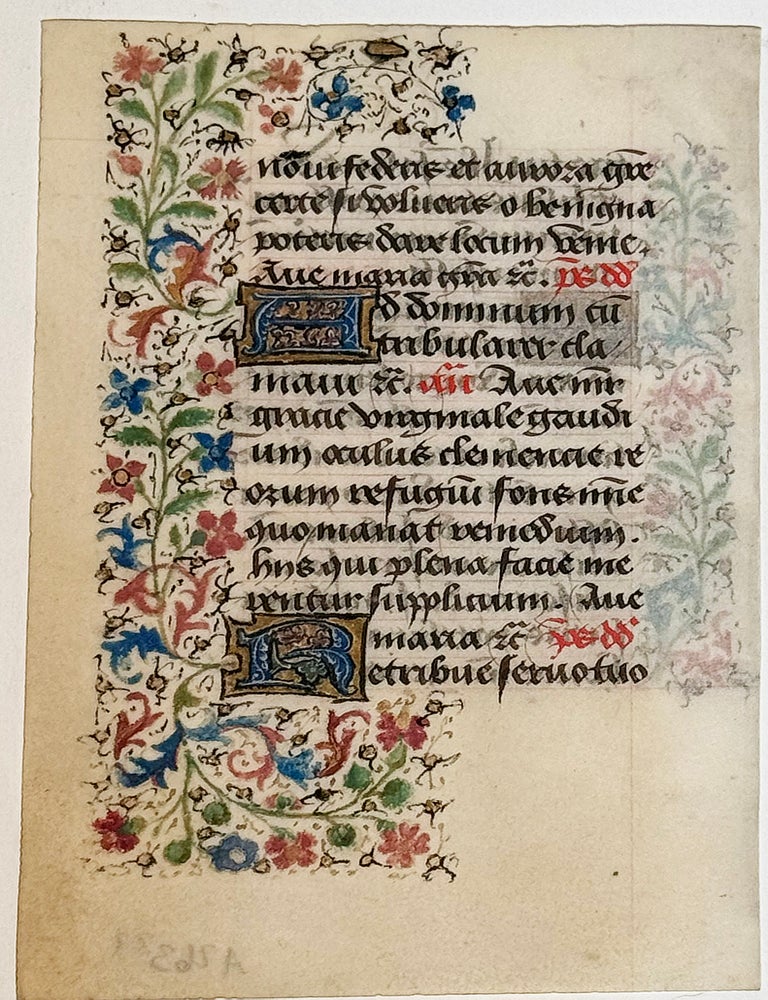 noui federis et aurora gr̄e
certe si volueris o benigna
poteris dare locum venie.
Aue maria gr̄a ⁊c̄. p̄s dd̄
Ad dominum cū
tribularer cla-
maui ⁊c̄. an̄ Aue m̄r
gracie virginale gaudi
um oculus clemencie re
orum refugiū fons m̄īe
quo manat remedium.
hijs qui plena facie me
rentur supplicium. Aue
maria ⁊c̄ p̄s dd̄
Retribue seruo tuo